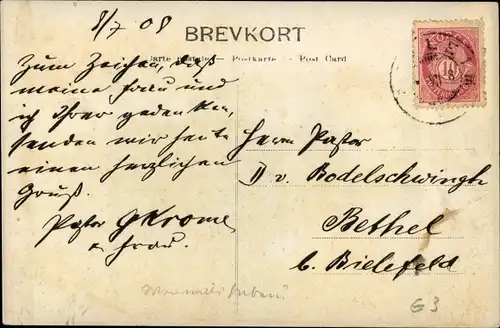 8/7 08
BREVKORT
Carte postale. — Postkarte. — Post Card
Zum Zeichen, daß
meine Frau und
ich Ihrer gedenken,
senden wir heute
einen herzlichen
Gruß.
Pastor GKrome
u. Frau.
Herrn Pastor
D v. Bodelschwingh
Bethel
b. Bielefeld
10
G3